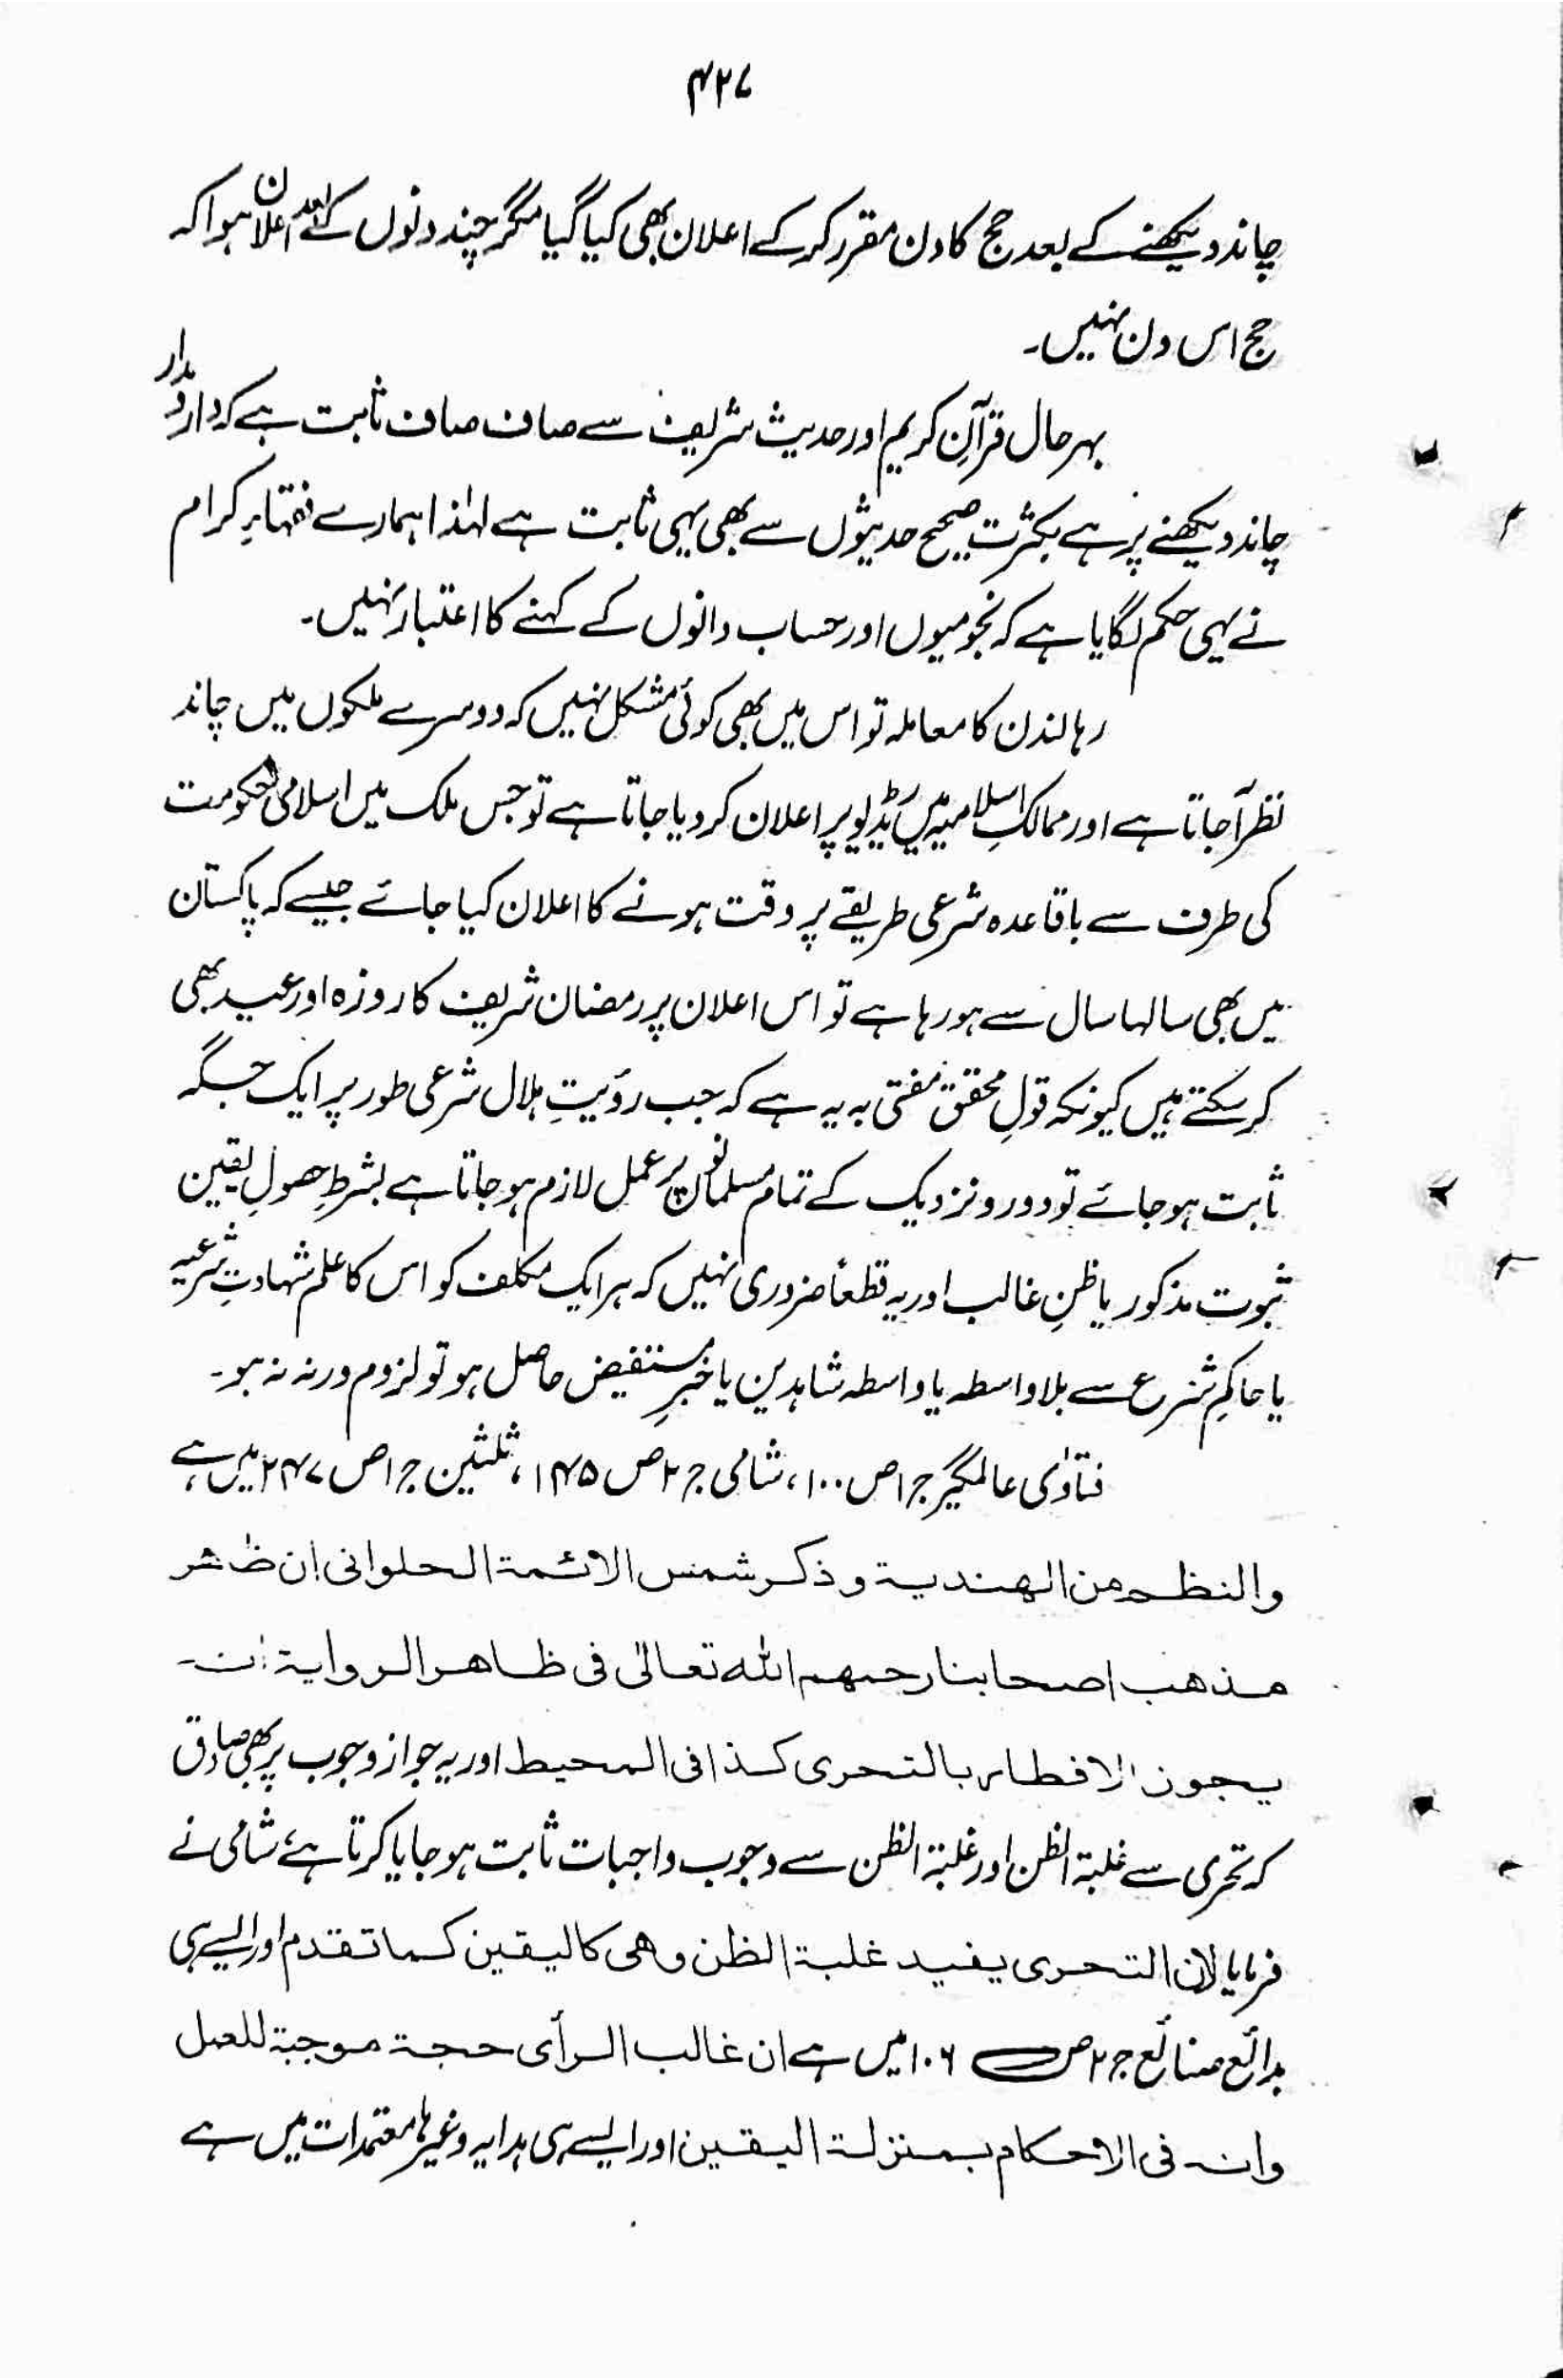 ۴۲۷
چاند دیکھنے کے بعد حج کا دن مقرر کر کے اعلان بھی کیا گیا مگر چند دنوں کے بعد اعلان ہوا کہ
حج اس دن نہیں۔
بہرحال قرآنِ کریم اور حدیث شریف سے صاف صاف ثابت ہے کہ دار و مدار
چاند دیکھنے پر ہے بکثرت صحیح حدیثوں سے بھی یہی ثابت ہے لہٰذا ہمارے فقہاءِ کرام
نے یہی حکم لگایا ہے کہ نجومیوں اور حساب دانوں کے کہنے کا اعتبار نہیں۔
رہا لندن کا معاملہ تو اس میں بھی کوئی مشکل نہیں کہ دوسرے ملکوں میں چاند
نظر آ جاتا ہے اور ممالکِ اسلامیہ میں ریڈیو پر اعلان کر دیا جاتا ہے تو جس ملک میں اسلامی حکومت
کی طرف سے باقاعدہ شرعی طریقے پر وقت ہونے کا اعلان کیا جائے جیسے کہ پاکستان
میں بھی سالہا سال سے ہو رہا ہے تو اس اعلان پر رمضان شریف کا روزہ اور عید بھی
کر سکتے ہیں کیونکہ قولِ محقق مفتی بہ یہ ہے کہ جب رؤیتِ ہلال شرعی طور پر ایک جگہ
ثابت ہو جائے تو دور و نزدیک کے تمام مسلمانوں پر عمل لازم ہو جاتا ہے بشرطِ حصولِ یقین
ثبوت مذکور یا ظنِ غالب اور یہ قطعاً ضروری نہیں کہ ہر ایک مکلف کو اس کا علم شہادتِ شرعیہ
یا حاکمِ شرع سے بلا واسطہ یا واسطہ شاہدین یا خبرِ مستفیض حاصل ہو تو لزوم ورنہ نہ ہو۔
فتاوٰی عالمگیر ج ۱ ص ۱۰۰، شامی ج ۲ ص ۱۴۵، ثلثین ج ۱ ص ۲۴۷ میں ہے
والنظم من الهندیة و ذکر شمس الائمة الحلوانی ان ظاهر
مذهب اصحابنا رحمهم الله تعالیٰ فی ظاهر الروایة انه
یجوز الافطار بالتحری کذا فی المحیط اور یہ جواز وجوب پر بھی صادق
کہ تحری سے غلبۃ الظن اور غلبۃ الظن سے وجوب واجبات ثابت ہو جایا کرتا ہے شامی نے
فرمایا لان التحری یفید غلبة الظن وهی کالیقین کما تقدم اور ایسے ہی
بدائع صنائع ج ۲ ص ۱۰۶ میں ہے ان غالب الرأی حجة موجبة للعمل
وانه فی الاحکام بمنزلة الیقین اور ایسے ہی ہدایہ وغیرہا معتمدات میں ہے